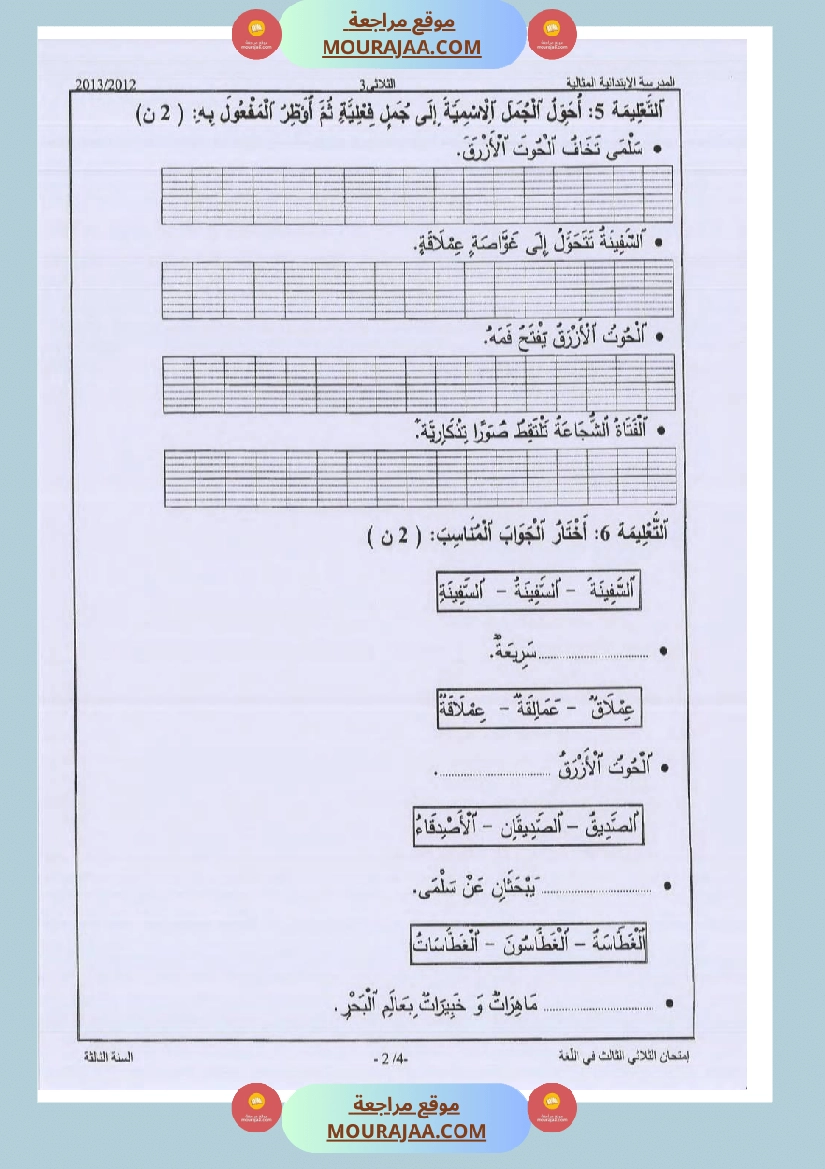 موقع مراجعة
MOURAJAA.COM
المدرسة الإبتدائية المثالية الثلاثي3 2013/2012
اَلتَّعْلِيمَة 5: أُحَوِّلُ اَلْجُمَلَ اَلْاِسْمِيَّةَ إِلَى جُمَلٍ فِعْلِيَّةٍ ثُمَّ أُؤَطِّرُ اَلْمَفْعُولَ بِهِ: ( 2 ن)
• سَلْمَى تَخَافُ اَلْحُوتَ اَلْأَزْرَقَ.
• اَلسَّفِينَةُ تَتَحَوَّلُ إِلَى غَوَّاصَةٍ عِمْلَاقَةٍ.
• اَلْحُوتُ اَلْأَزْرَقُ يَفْتَحُ فَمَهُ.
• اَلْفَتَاةُ اَلشُّجَاعَةُ تَلْتَقِطُ صُوَرًا تِذْكَارِيَّةً.
اَلتَّعْلِيمَة 6: أَخْتَارُ اَلْجَوَابَ اَلْمُنَاسِبَ: ( 2 ن )
اَلسَّفِينَةَ – اَلسَّفِينَةُ – اَلسَّفِينَةِ
• ............................سَرِيعَةٌ.
عِمْلَاقٌ – عَمَالِقَةٌ – عِمْلَاقَةٌ
• اَلْحُوتُ اَلْأَزْرَقُ ............................ .
اَلصَّدِيقُ – اَلصَّدِيقَانِ – اَلْأَصْدِقَاءُ
• ............................يَبْحَثَانِ عَنْ سَلْمَى.
اَلْغَطَّاسَةُ – اَلْغَطَّاسُونَ – اَلْغَطَّاسَاتُ
• ............................ مَاهِرَاتٌ وَ خَبِيرَاتٌ بِعَالَمِ اَلْبَحْرِ.
إمتحان الثلاثي الثالث في اللغة - 2 /4- السنة الثالثة
موقع مراجعة
MOURAJAA.COM